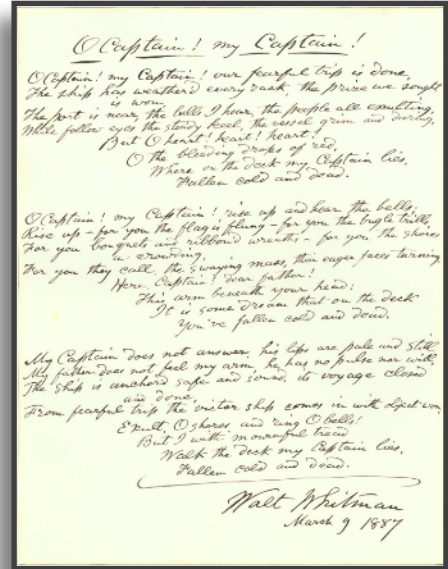 O Captain! my Captain!
O Captain! my Captain! our fearful trip is done,
The ship has weather'd every rack, the prize we sought
is won,
The port is near, the bells I hear, the people all exulting,
While follow eyes the steady keel, the vessel grim and daring,
But O heart! heart! heart!
O the bleeding drops of red,
Where on the deck my Captain lies,
Fallen cold and dead.
O Captain! my Captain! rise up and hear the bells:
Rise up – for you the flag is flung – for you the bugle trills,
For you bouquets and ribbon'd wreaths – for you the shores
a-crowding,
For you they call, the swaying mass, their eager faces turning
Here, Captain! dear father!
This arm beneath your head:
It is some dream that on the deck
You've fallen cold and dead.
My Captain does not answer, his lips are pale and still
My father does not feel my arm, he has no pulse nor will
The ship is anchor'd safe and sound, its voyage closed
and done,
From fearful trip the victor ship comes in with object won,
Exult, O shores, and ring O bells!
But I with mournful tread
Walk the deck my Captain lies,
Fallen cold and dead.
Walt Whitman
March 9 1887